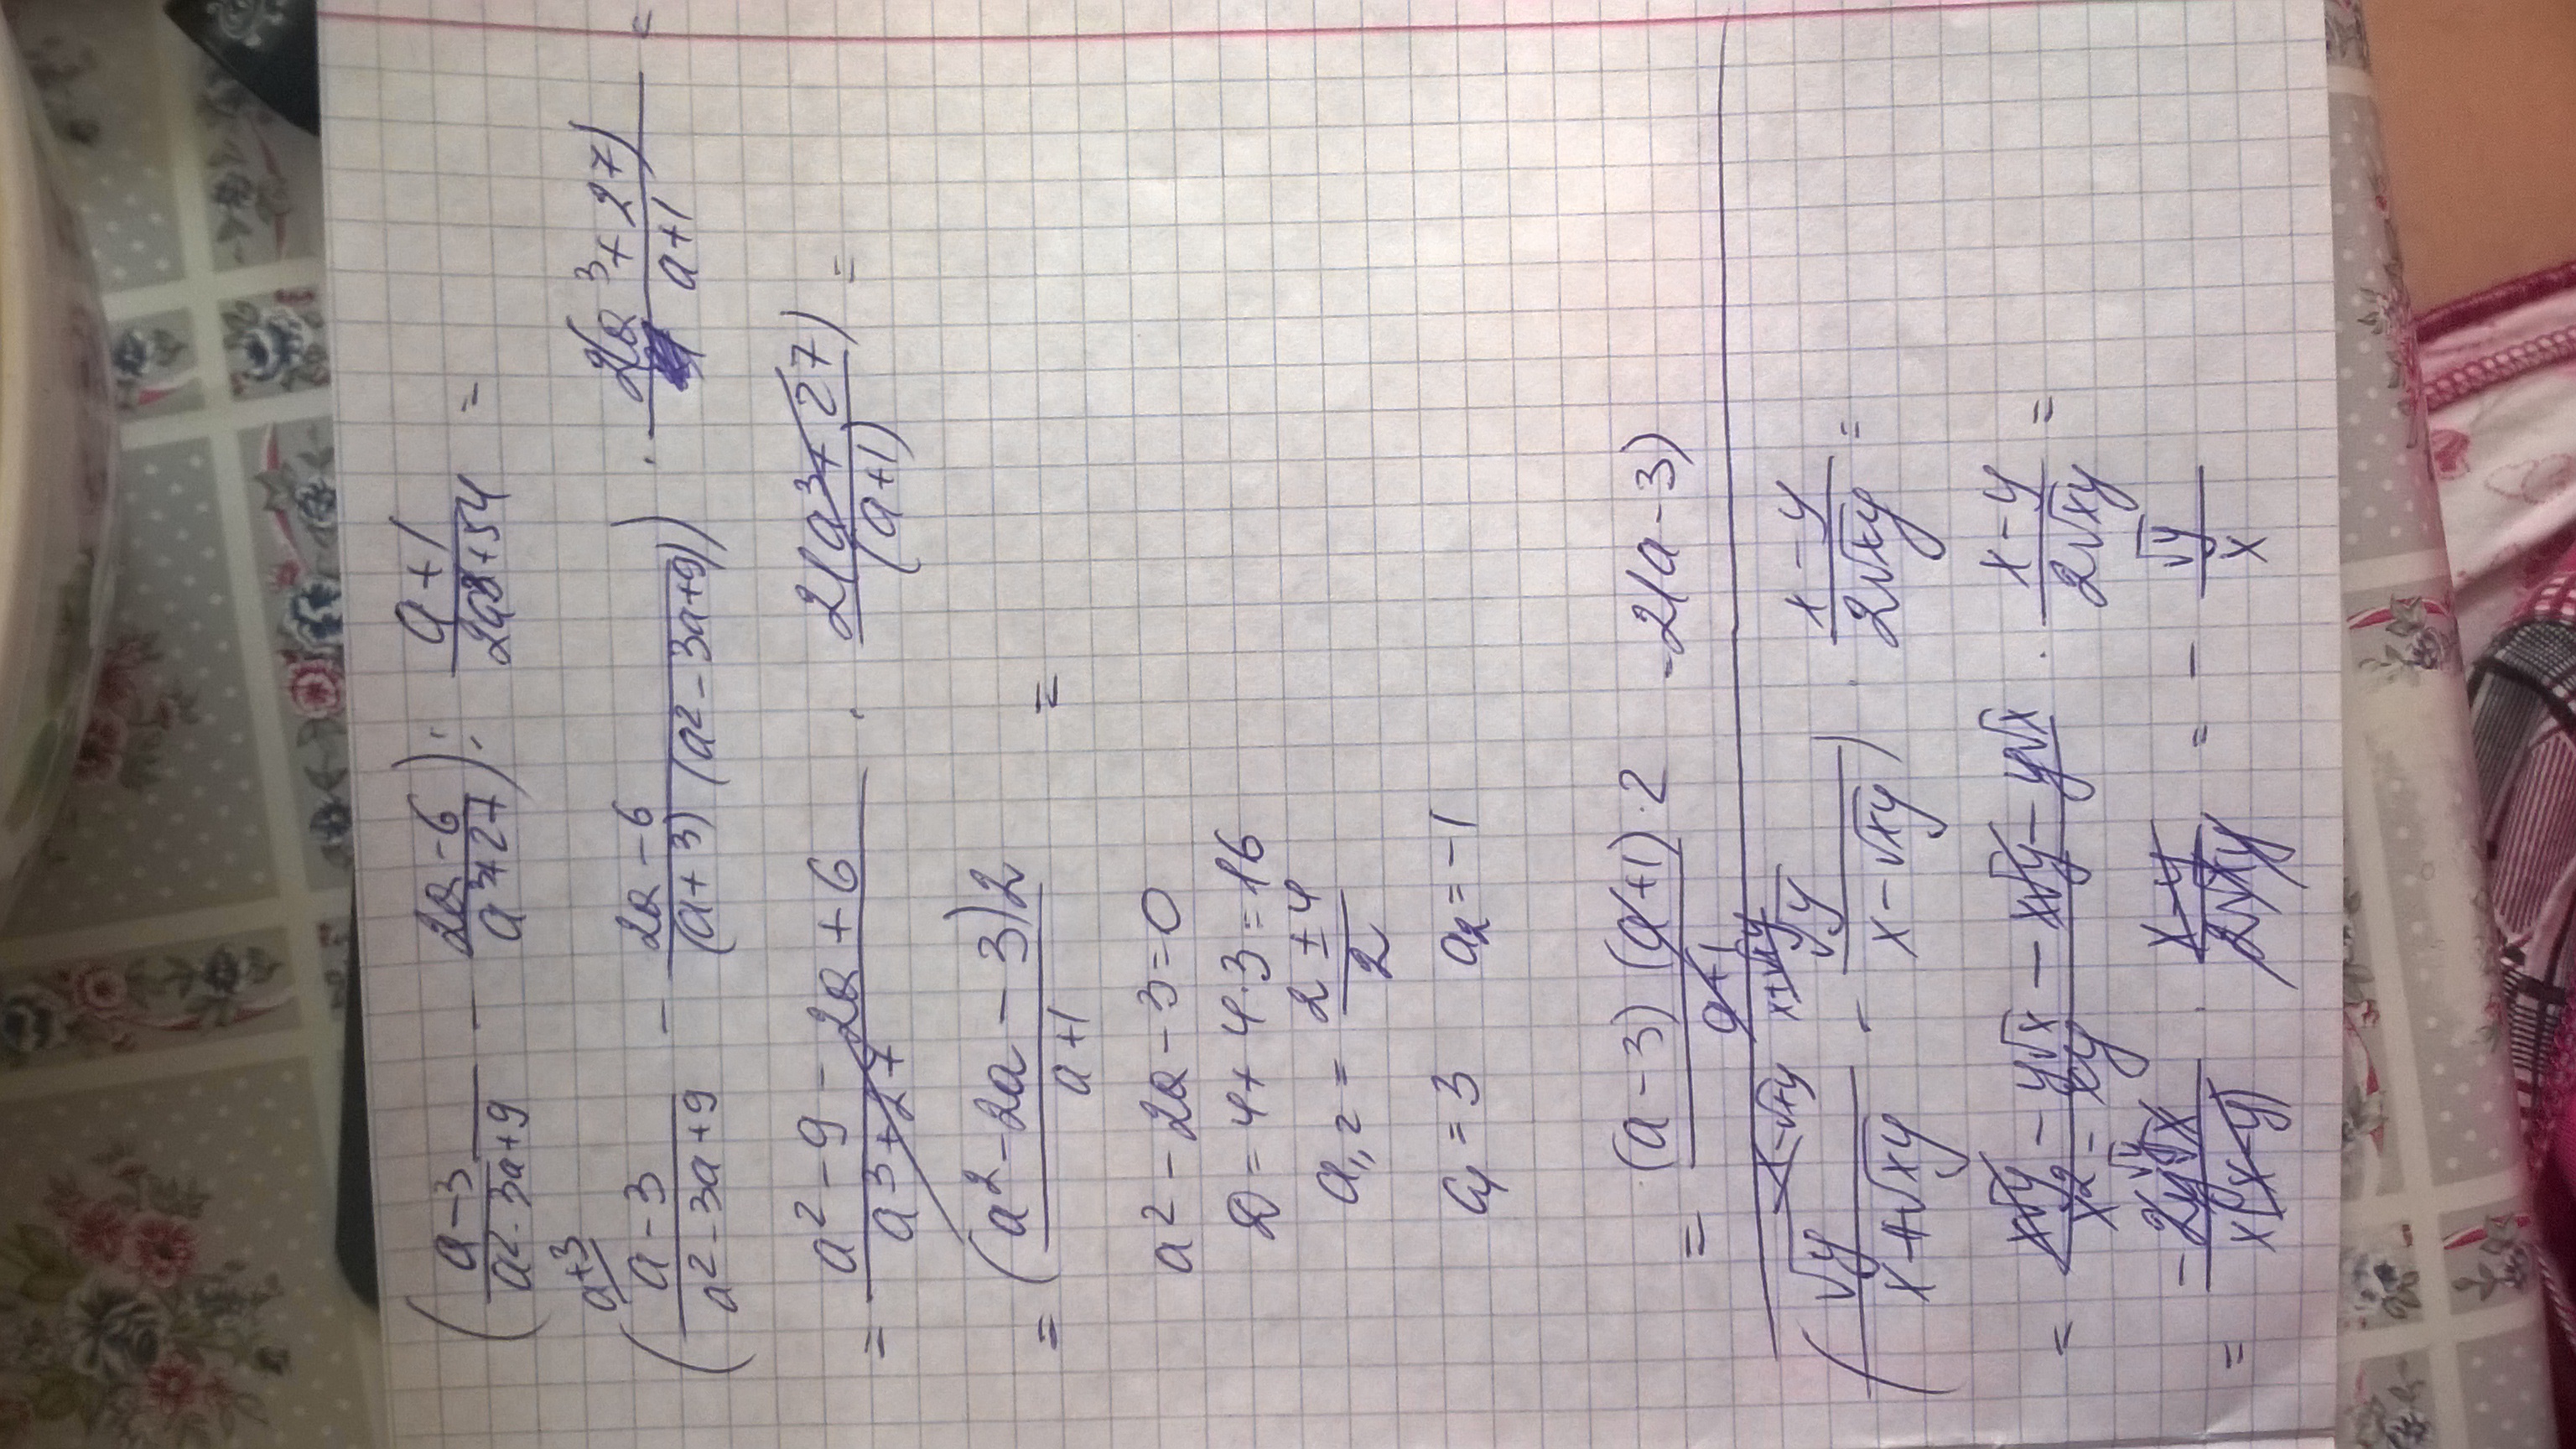 (a-3/a²-3a+9 - 2a-6/a³+27) : a+1/2a³+54 =
a+3
(a-3/a²-3a+9 - 2a-6/(a+3)(a²-3a+9)) · 2(a³+27)/a+1 =
= a²-9-2a+6/a³+27 · 2(a³+27)/(a+1) =
= (a²-2a-3)2/a+1 =
a²-2a-3=0
D=4+4·3=16
a₁,₂ = 2±4/2
a₁=3 a₂=-1
= (a-3)(a+1)·2/a+1 -2(a-3)
x-√xy x+√xy
(√y/x+√xy - √y/x-√xy) · x-y/2√xy =
= x√y-y√x-x√y-y√x/x²-xy · x-y/2√xy =
= -2y√x/x(x-y) · x-y/2√xy = - √y/x